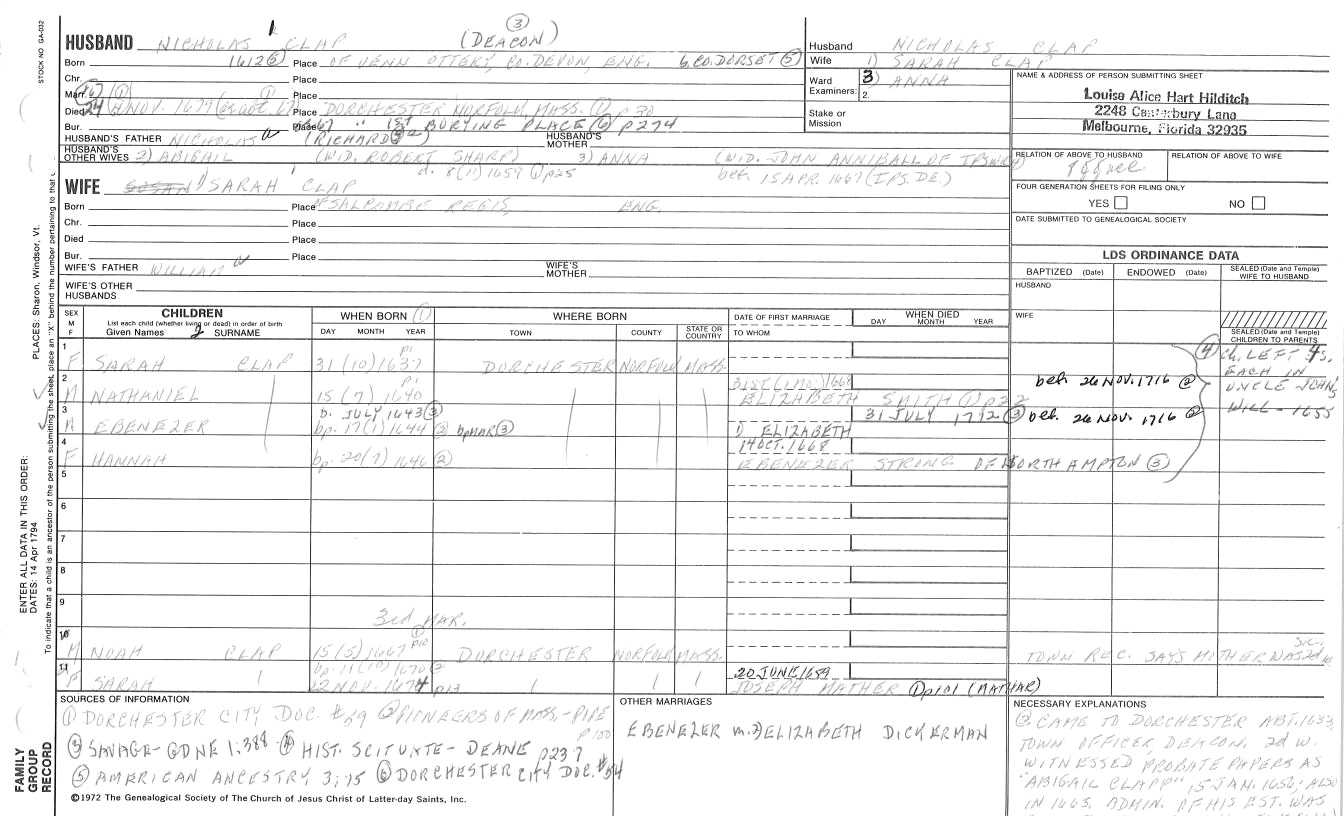 STOCK NO GA-032
HUSBAND NICHOLAS 1 CLAP (DEACON) ③
Born 1612⑤ Place OF VENN OTTERY, CO. DEVON, ENG. CO. DORSET⑤
Chr. Place
Marr. Place
Died 24 NOV. 1679 Place DORCHESTER NORFOLK MASS. ① p 20
Bur. Place 1ST BURYING PLACE ⑥ p274
HUSBAND'S FATHER NICHOLAS (RICHARD) HUSBAND'S MOTHER
HUSBAND'S OTHER WIVES 2) ABIGAIL (WID. ROBERT SHARP) 3) ANNA (WID. JOHN ANNIBALL OF IPSWICH)
d. 8(11)1659 ① p25 bef. 15 APR. 1667 (IPS. DE)
WIFE SUSAN 1) SARAH CLAP
Born Place SALCOMBE REGIS, ENG.
Chr. Place
Died Place
Bur. Place
WIFE'S FATHER WILLIAM WIFE'S MOTHER
WIFE'S OTHER HUSBANDS
Husband NICHOLAS CLAP
Wife 1) SARAH CLAP
Ward 3) ANNA
Examiners: 2.
Stake or Mission
NAME & ADDRESS OF PERSON SUBMITTING SHEET
Louise Alice Hart Hilditch
2248 Canterbury Lane
Melbourne, Florida 32935
RELATION OF ABOVE TO HUSBAND RELATION OF ABOVE TO WIFE
FOUR GENERATION SHEETS FOR FILING ONLY
YES NO
DATE SUBMITTED TO GENEALOGICAL SOCIETY
LDS ORDINANCE DATA
BAPTIZED (Date) ENDOWED (Date) SEALED (Date and Temple) WIFE TO HUSBAND
HUSBAND
WIFE
SEALED (Date and Temple) CHILDREN TO PARENTS
SEX M F CHILDREN List each child (whether living or dead) in order of birth Given Names 2 SURNAME WHEN BORN ① DAY MONTH YEAR WHERE BORN TOWN COUNTY STATE OR COUNTRY DATE OF FIRST MARRIAGE TO WHOM WHEN DIED DAY MONTH YEAR
1 F SARAH CLAP 31 (10) 1637 p1 DORCHESTER NORFOLK MASS.
④ Ch. LEFT £5, EACH IN UNCLE JOHN'S WILL - 1655
2 M NATHANIEL 15 (7) 1640 p1 31ST (1MO) 1668 ELIZABETH SMITH ① p22 bef. 26 NOV. 1716 ②
3 M EBENEZER b. JULY 1643③ bp. 17(1)1644 ② bpMAR③ 1) ELIZABETH 31 JULY 1712 ③ bef. 26 NOV. 1716 ②
4 F HANNAH bp. 20(7) 1646② 14 OCT. 1668 EBENEZER STRONG OF NORTHAMPTON ③
5
6
7
8
9
3rd MAR.
10 M NOAH CLAP 15(5)1667 ① p10 DORCHESTER NORFOLK MASS. TOWN REC. SAYS MOTHER WAS
11 F SARAH 22 NOV. 1674 p13 20 JUNE 1659 JOSEPH MATHER ① p101 (MATHAR)
SOURCES OF INFORMATION
① DORCHESTER CITY DOC. #29 ② PIONEERS OF MASS. - POPE p100
③ SAVAGE - GDNE 1, 388 - ④ HIST. SCITUATE - DEANE p237
⑤ AMERICAN ANCESTRY 3; 15 ⑥ DORCHESTER CITY DOC. #54
OTHER MARRIAGES
EBENEZER m. 2) ELIZABETH DICKERMAN
NECESSARY EXPLANATIONS
② CAME TO DORCHESTER ABT. 1633
TOWN OFFICER, DEACON. 2d W.
WITNESSED PROBATE PAPERS AS
"ABIGAIL CLAPP", 15 JAN. 1656; ALSO
IN 1663. ADMIN. OF HIS EST. WAS
©1972 The Genealogical Society of The Church of Jesus Christ of Latter-day Saints, Inc.
FAMILY GROUP RECORD
ENTER ALL DATA IN THIS ORDER:
DATES: 14 Apr 1794
PLACES: Sharon, Windsor, Vt.
To indicate that a child is an ancestor of the person submitting the sheet, place an "X" behind the number pertaining to that